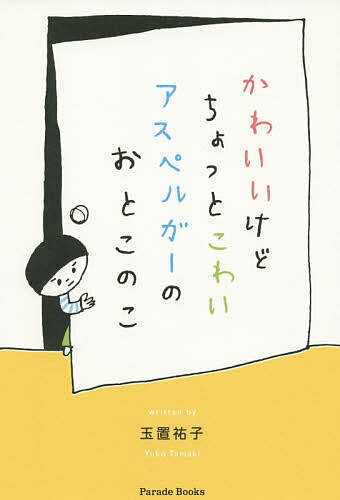 かわいいけど
ちょっとこわい
アスペルガーの
おとこのこ
written by
玉置祐子
Yuko Tamaki
Parade Books